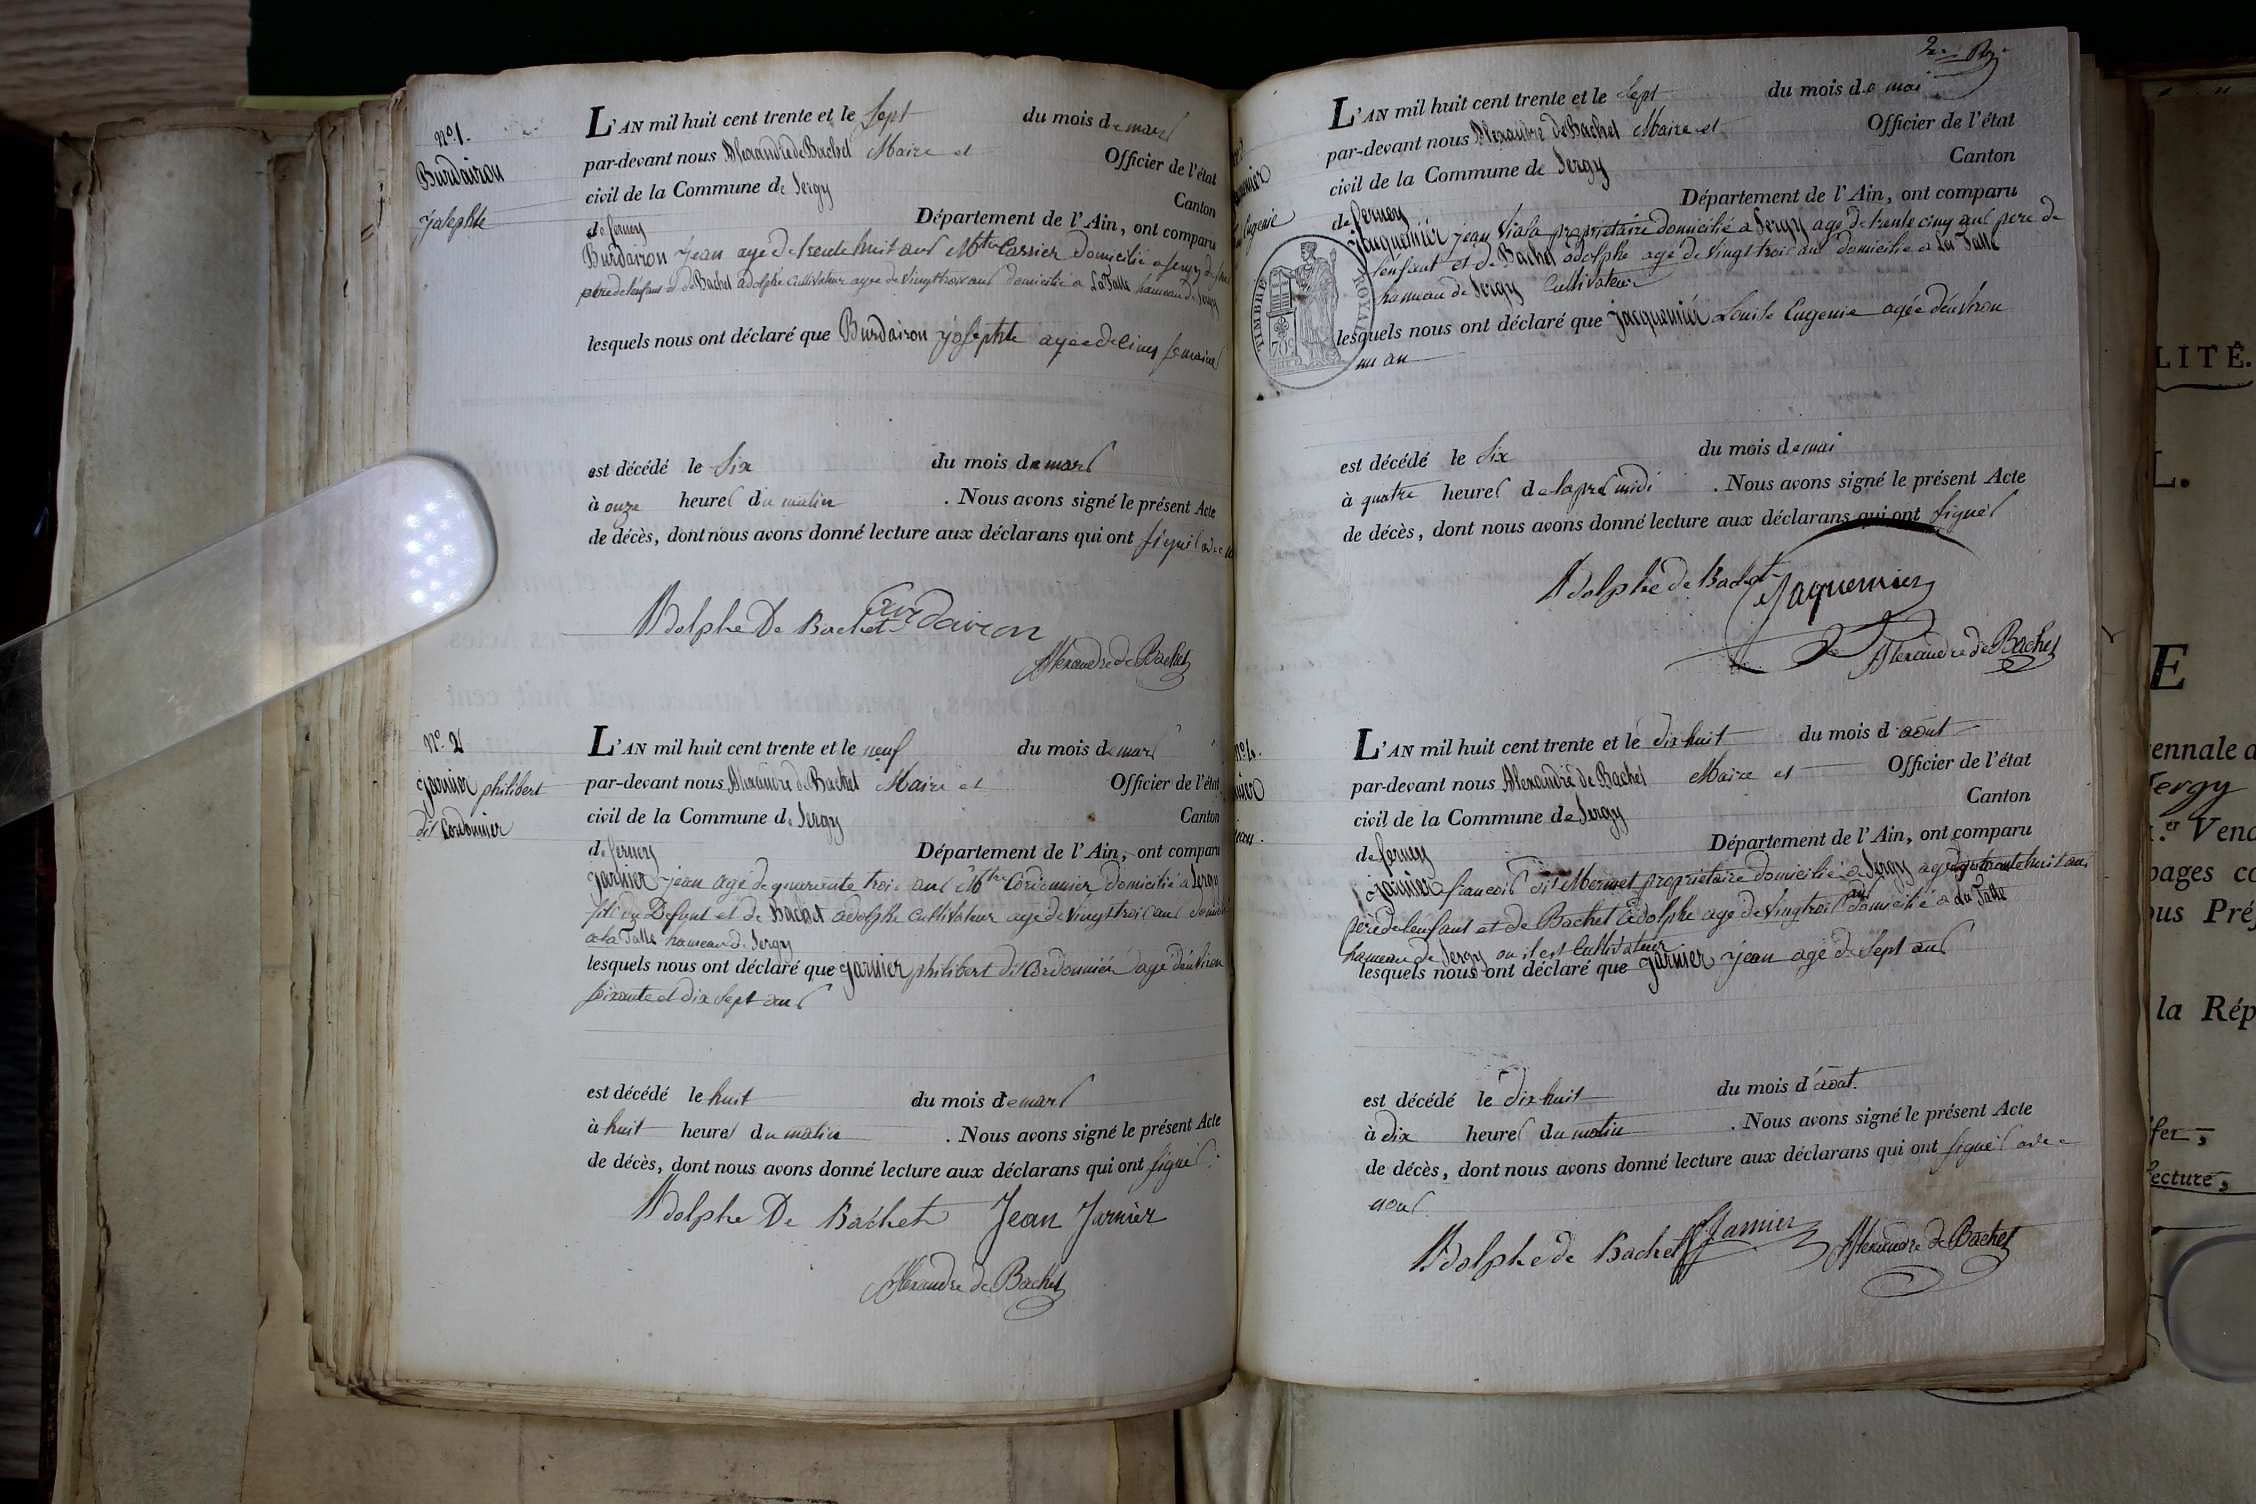 nº 1.
Burdairon
josephte
L'AN mil huit cent trente et le sept du mois de mars
par-devant nous Alexandre de Bachet Maire et Officier de l'état
civil de la Commune de Sergy Canton
de ferney Département de l'Ain, ont comparu
Burdairon jean agé de trente huit ans Mtre Cassier domicilié a Sergy
pere de lenfant et de Bachet adolphe cultivateur agée de vingt trois ans domicilié a La Talle hameau de Sergy
lesquels nous ont déclaré que Burdairon josephte agée de cinq semaines
est décédé le six du mois de mars
à onze heures du matin . Nous avons signé le présent Acte
de décès, dont nous avons donné lecture aux déclarans qui ont signés avec
Adolphe De Bachet Burdairon
Alexandre de Bachet
Nº 2
garnier philibert
dit Cordonnier
L'AN mil huit cent trente et le neuf du mois de mars
par-devant nous Alexandre de Bachet Maire et Officier de l'état
civil de la Commune de Sergy Canton
de ferney Département de l'Ain, ont comparu
garnier jean agé de quarante trois ans Mtre Cordonnier domicilié a Sergy
fils du Defunt et de Bachet adolphe cultivateur agé de vingt trois ans
a la Talle hameau de Sergy
lesquels nous ont déclaré que garnier philibert dit agé dénviron
soixante et dix sept ans
est décédé le huit du mois de mars
à huit heures du matin . Nous avons signé le présent Acte
de décès, dont nous avons donné lecture aux déclarans qui ont signés.
Adolphe De Bachet Jean Jarnier
Alexandre de Bachet
Eugenie
L'AN mil huit cent trente et le sept du mois de mai
par-devant nous Alexandre de Bachet Maire et Officier de l'état
civil de la Commune de Sergy Canton
de ferney Département de l'Ain, ont comparu
jacquemier jean propriétaire domicilié a Sergy agé de trente cinq ans pere de
lenfant et de Bachet adolphe agé de vingt trois ans domicilié a La Talle
hameau de Sergy Cultivateur
TIMBRE ROYAL
lesquels nous ont déclaré que jacquemier Louise Eugenie agée dénviron
un an
est décédé le six du mois de mai
à quatre heures de laprès midi . Nous avons signé le présent Acte
de décès, dont nous avons donné lecture aux déclarans qui ont signés
Adolphe de Bachet Jaquemier
Alexandre de Bachet
L'AN mil huit cent trente et le dix huit du mois d'août
par-devant nous Alexandre de Bachet Maire et Officier de l'état
civil de la Commune de Sergy Canton
de ferney Département de l'Ain, ont comparu
garnier francois dit Mermet proprietaire domicilié a Sergy agé de trente huit ans
père de lenfant et de Bachet adolphe age de vingt trois ans domicilié a La Talle
hameau de Sergy ou il est Cultivateur
lesquels nous ont déclaré que garnier jean agé de sept ans
est décédé le dix huit du mois d'août.
à dix heures du matin . Nous avons signé le présent Acte
de décès, dont nous avons donné lecture aux déclarans qui ont signés avec
nous
Adolphe de Bachet Garnier Alexandre de Bachet
LITÉ.
L.
E
ennale
Sergy
Vend
pages
ous Pré
la Rép
fer,
lecture,